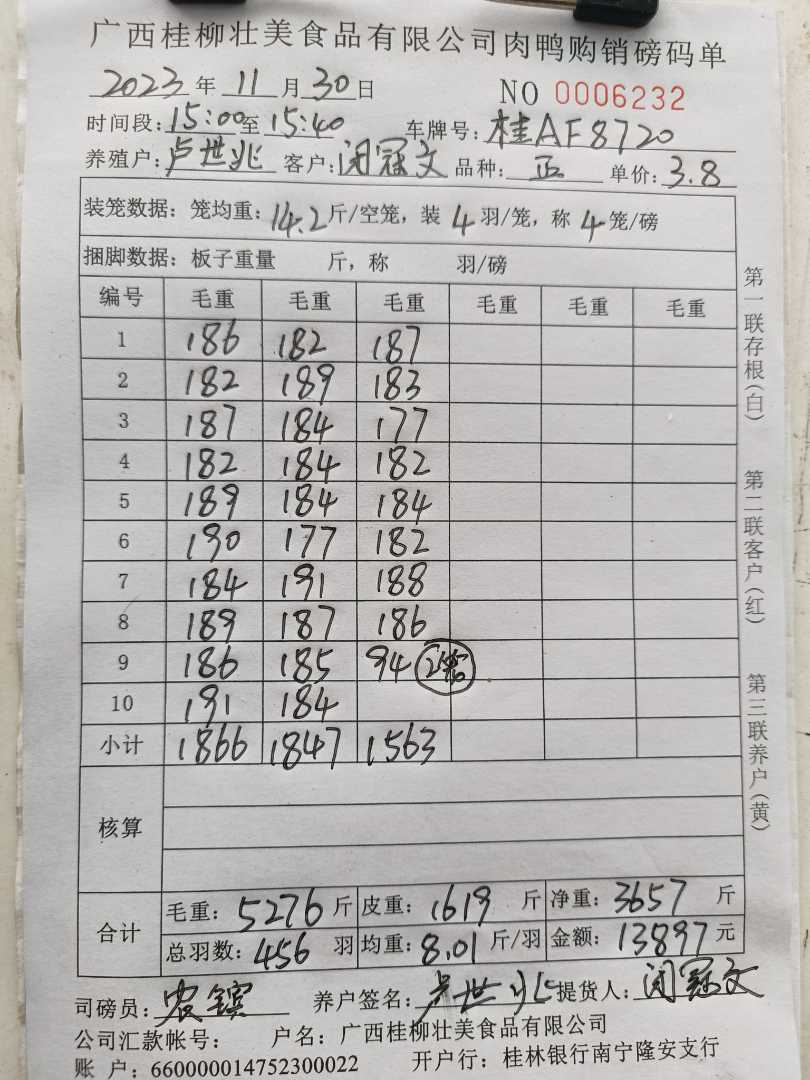 广西桂柳壮美食品有限公司肉鸭购销磅码单
2023 年 11 月 30 日 NO 0006232
时间段: 15:00 至 15:40 车牌号: 桂AF8720
养殖户: 卢世兆 客户: 闭冠文 品种: 正 单价: 3.8
装笼数据: 笼均重: 14.2 斤/空笼, 装 4 羽/笼, 称 4 笼/磅
捆脚数据: 板子重量 斤, 称 羽/磅
编号 毛重 毛重 毛重 毛重 毛重 毛重
1 186 182 187
2 182 189 183
3 187 184 177
4 182 184 182
5 189 184 184
6 190 177 182
7 184 191 188
8 189 187 186
9 186 185 94 2笼
10 191 184
小计 1866 1847 1563
核算
合计
毛重: 5276 斤 皮重: 1619 斤 净重: 3657 斤
总羽数: 456 羽 均重: 8.01 斤/羽 金额: 13897 元
司磅员: 农镔 养户签名: 卢世兆 提货人: 闭冠文
公司汇款帐号: 户名: 广西桂柳壮美食品有限公司
账 户: 660000014752300022 开户行: 桂林银行南宁隆安支行
第一联存根(白)
第二联客户(红)
第三联养户(黄)